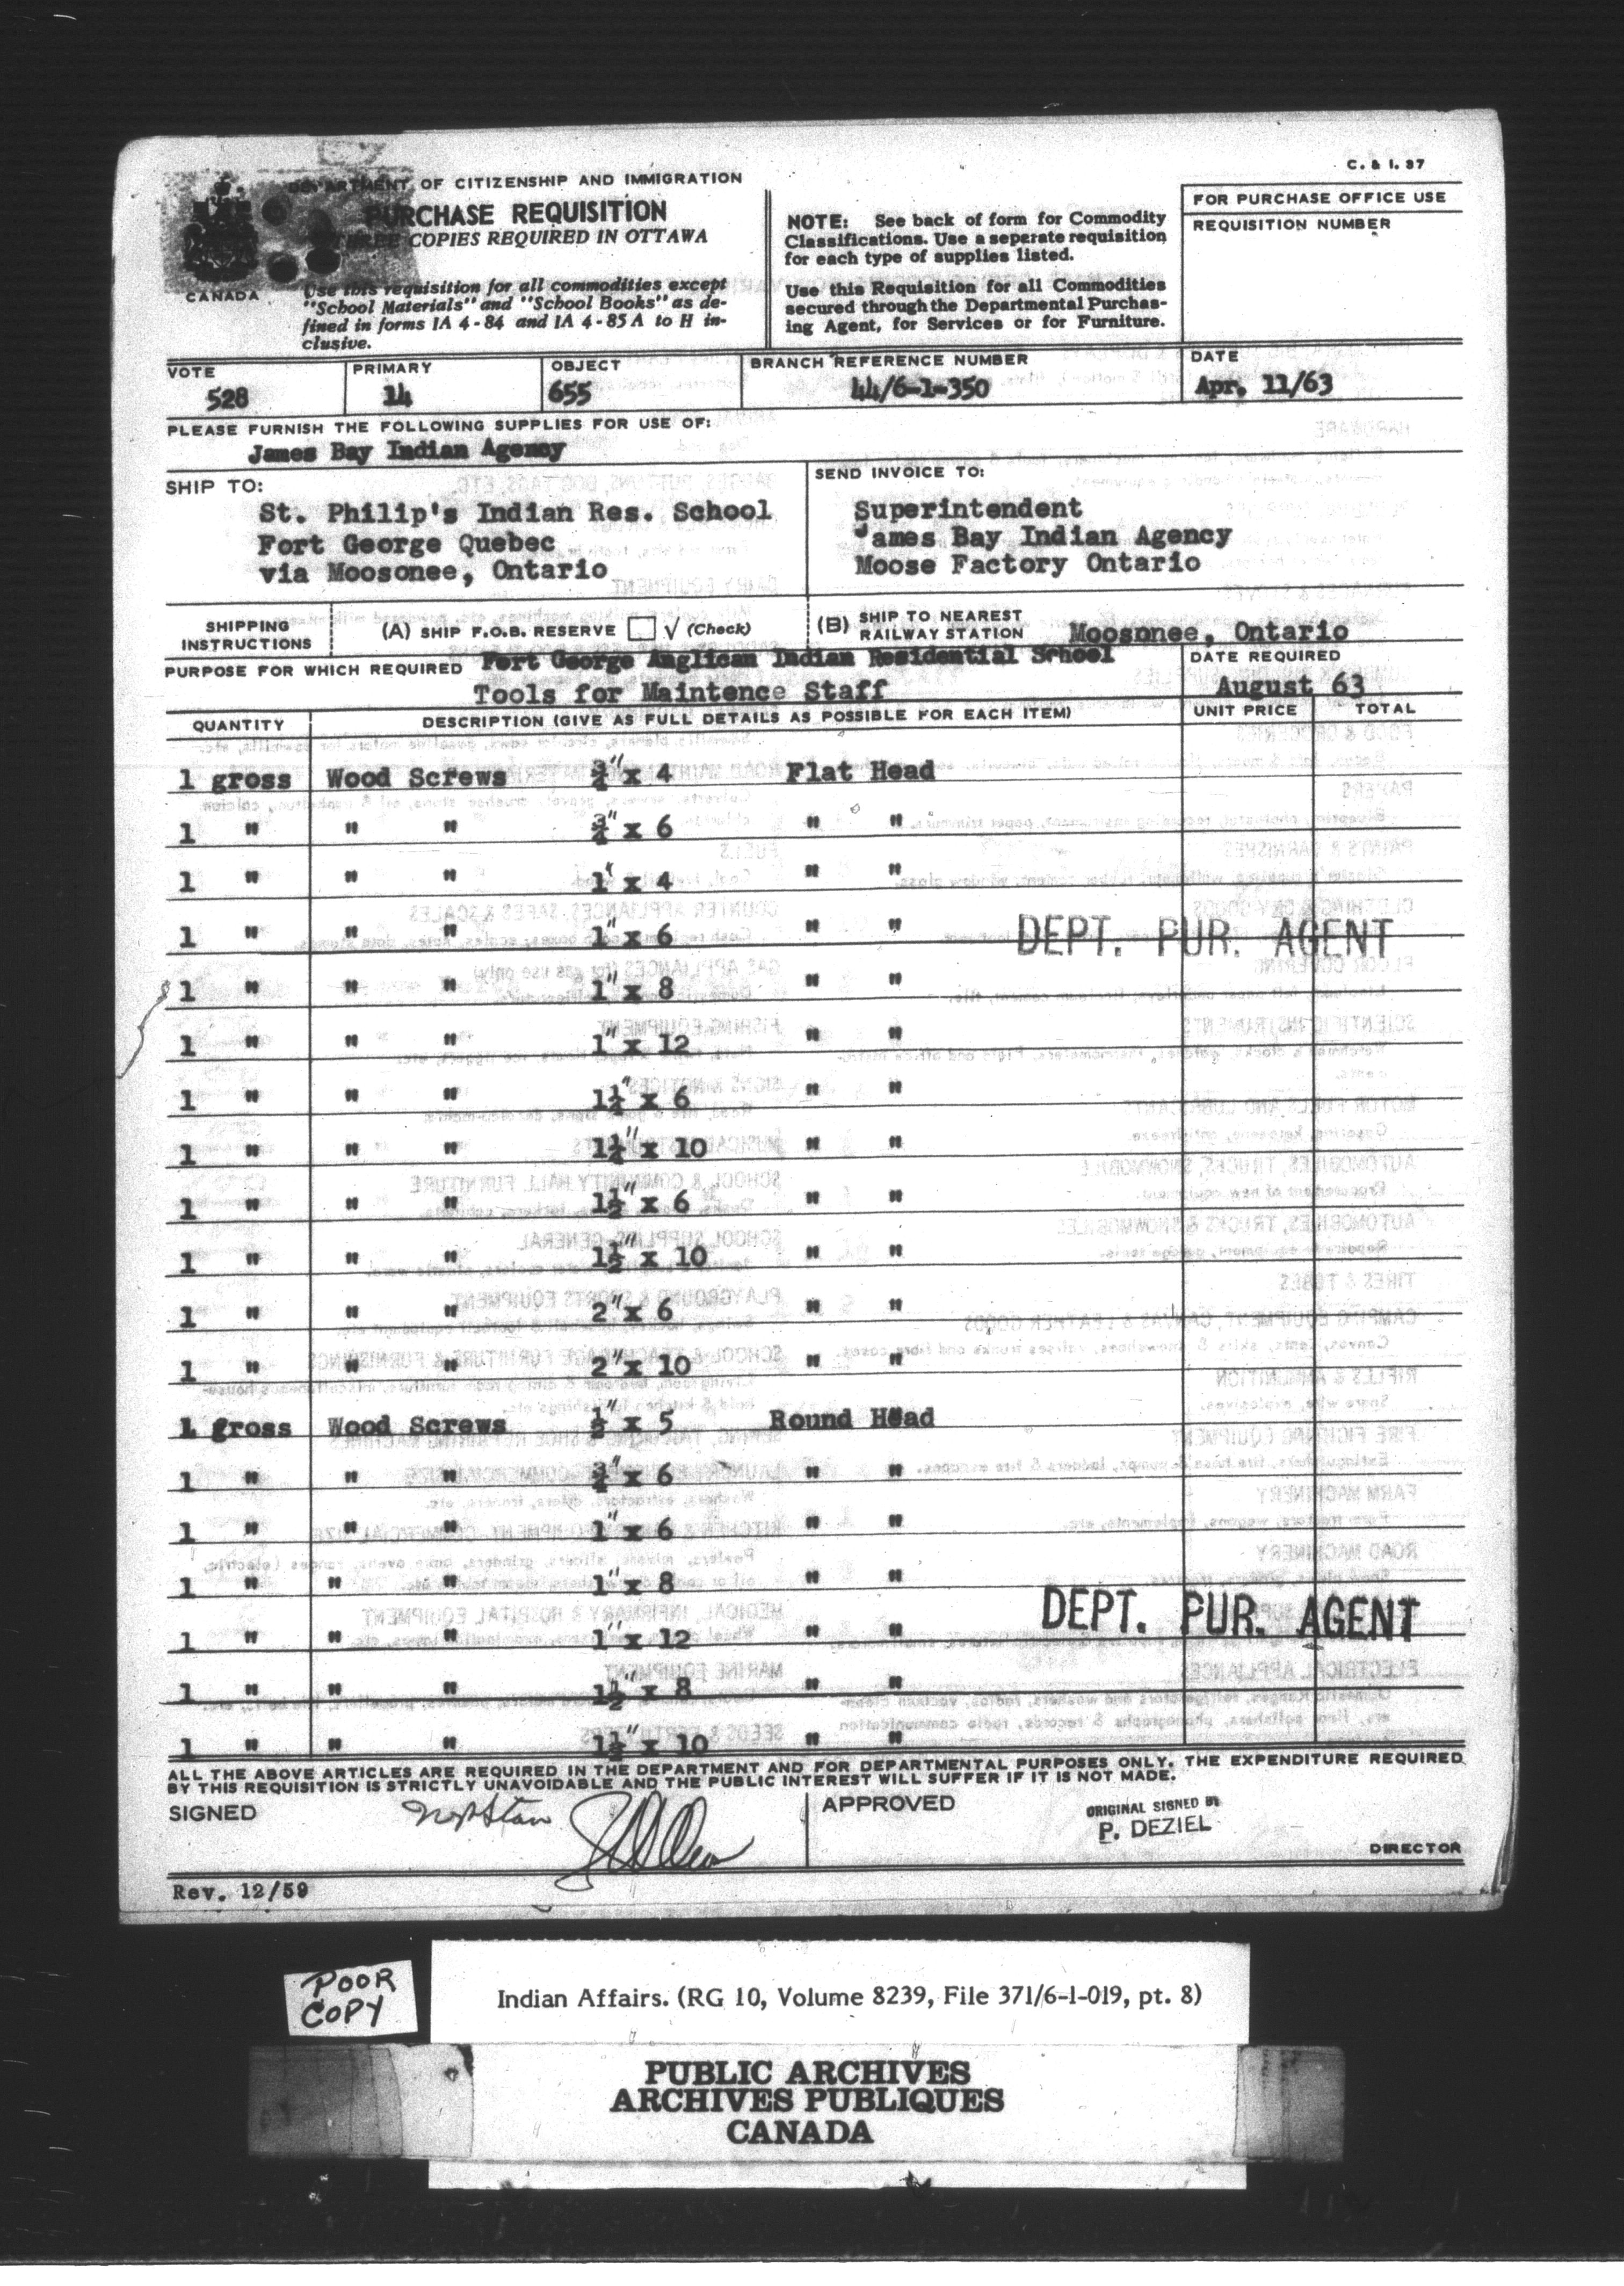 C. & I. 37
DEPARTMENT OF CITIZENSHIP AND IMMIGRATION
PURCHASE REQUISITION
THREE COPIES REQUIRED IN OTTAWA
CANADA
Use this requisition for all commodities except
"School Materials" and "School Books" as de-
fined in forms IA 4-84 and IA 4-85 A to H in-
clusive.
NOTE: See back of form for Commodity
Classifications. Use a separate requisition
for each type of supplies listed.
Use this Requisition for all Commodities
secured through the Departmental Purchas-
ing Agent, for Services or for Furniture.
FOR PURCHASE OFFICE USE
REQUISITION NUMBER
VOTE 528
PRIMARY 14
OBJECT 655
BRANCH REFERENCE NUMBER 44/6-1-350
DATE Apr. 11/63
PLEASE FURNISH THE FOLLOWING SUPPLIES FOR USE OF:
James Bay Indian Agency
SHIP TO:
St. Philip's Indian Res. School
Fort George Quebec
via Moosonee, Ontario
SEND INVOICE TO:
Superintendent
James Bay Indian Agency
Moose Factory Ontario
SHIPPING INSTRUCTIONS
(A) SHIP F.O.B. RESERVE √ (Check)
(B) SHIP TO NEAREST RAILWAY STATION Moosonee, Ontario
PURPOSE FOR WHICH REQUIRED Fort George Anglican Indian Residential School
Tools for Maintence Staff
DATE REQUIRED August 63
QUANTITY DESCRIPTION (GIVE AS FULL DETAILS AS POSSIBLE FOR EACH ITEM) UNIT PRICE TOTAL
1 gross Wood Screws 3/4" x 4 Flat Head
1 " " " 3/4" x 6 " "
1 " " " 1" x 4 " "
1 " " " 1" x 6 " "
DEPT. PUR. AGENT
1 " " " 1" x 8 " "
1 " " " 1" x 12 " "
1 " " " 1¼" x 6 " "
1 " " " 1¼" x 10 " "
1 " " " 1½" x 6 " "
1 " " " 1½" x 10 " "
1 " " " 2" x 6 " "
1 " " " 2" x 10 " "
1 gross Wood Screws ½" x 5 Round Head
1 " " " 3/4" x 6 " "
1 " " " 1" x 6 " "
1 " " " 1" x 8 " "
DEPT. PUR. AGENT
1 " " " 1" x 12 " "
1 " " " 1½" x 8 " "
1 " " " 1½" x 10 " "
ALL THE ABOVE ARTICLES ARE REQUIRED IN THE DEPARTMENT AND FOR DEPARTMENTAL PURPOSES ONLY. THE EXPENDITURE REQUIRED
BY THIS REQUISITION IS STRICTLY UNAVOIDABLE AND THE PUBLIC INTEREST WILL SUFFER IF IT IS NOT MADE.
SIGNED
APPROVED
ORIGINAL SIGNED BY
P. DEZIEL
DIRECTOR
Rev. 12/59
POOR
COPY
Indian Affairs. (RG 10, Volume 8239, File 371/6-1-019, pt. 8)
PUBLIC ARCHIVES
ARCHIVES PUBLIQUES
CANADA